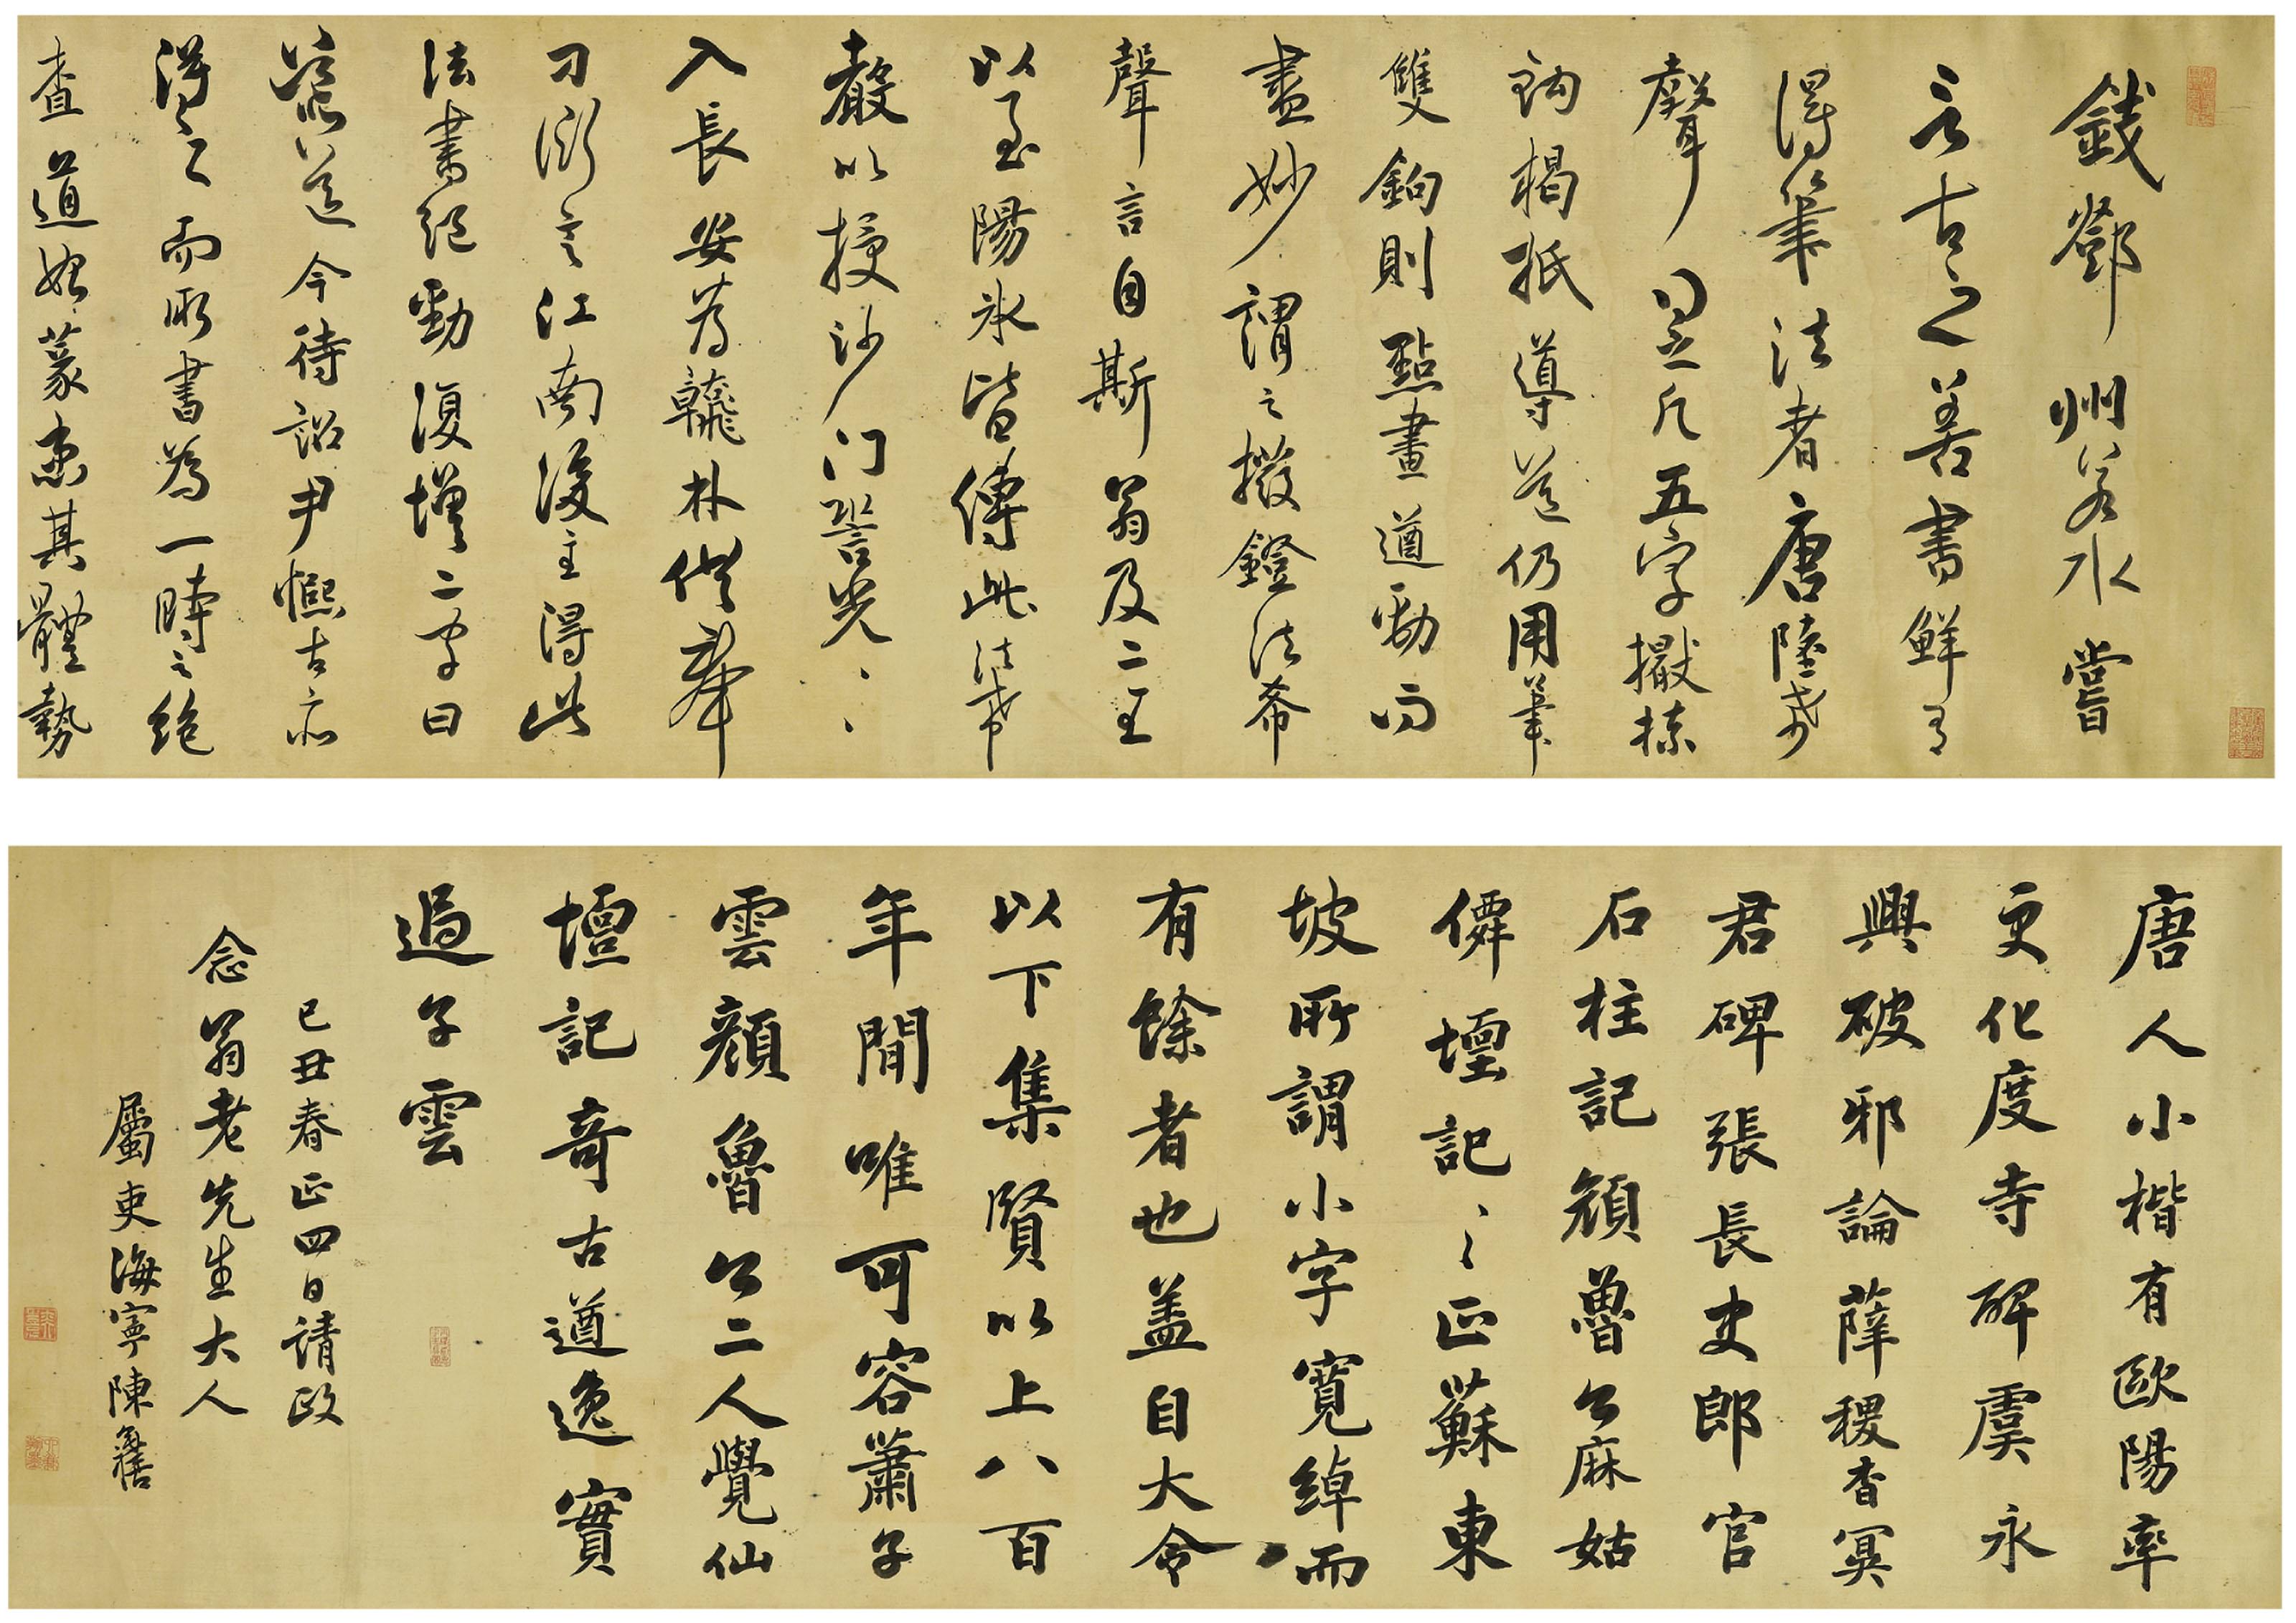 錢鄧州若水嘗
言古之善書鮮有
得筆法者唐陸希
聲得之凡五字擫押
鉤格抵導送仍用筆
雙鉤則點畫遒勁而
盡妙謂之撥鐙法希
聲言自斯翁及二王
以至陽冰皆傳此法希
聲以授沙門䛒光〻〻
入長安為翰林供奉
刁衎言江南後主得此
法書絕勁復增二字曰
導送今待詔尹熙古亦
得之而所書為一時之絕
查道始篆患其體勢
唐人小楷有歐陽率
更化度寺碑虞永
興破邪論薛稷杳冥
君碑張長史郎官
石柱記顏魯公麻姑
僊壇記〻正蘇東
坡所謂小字寬綽而
有餘者也蓋自大令
以下集賢以上八百
年間唯可容蕭子
雲顏魯公二人覺仙
壇記奇古遒逸實
過子雲
己丑春正四日請政
念翁老先生大人
屬吏海寧陳奕禧